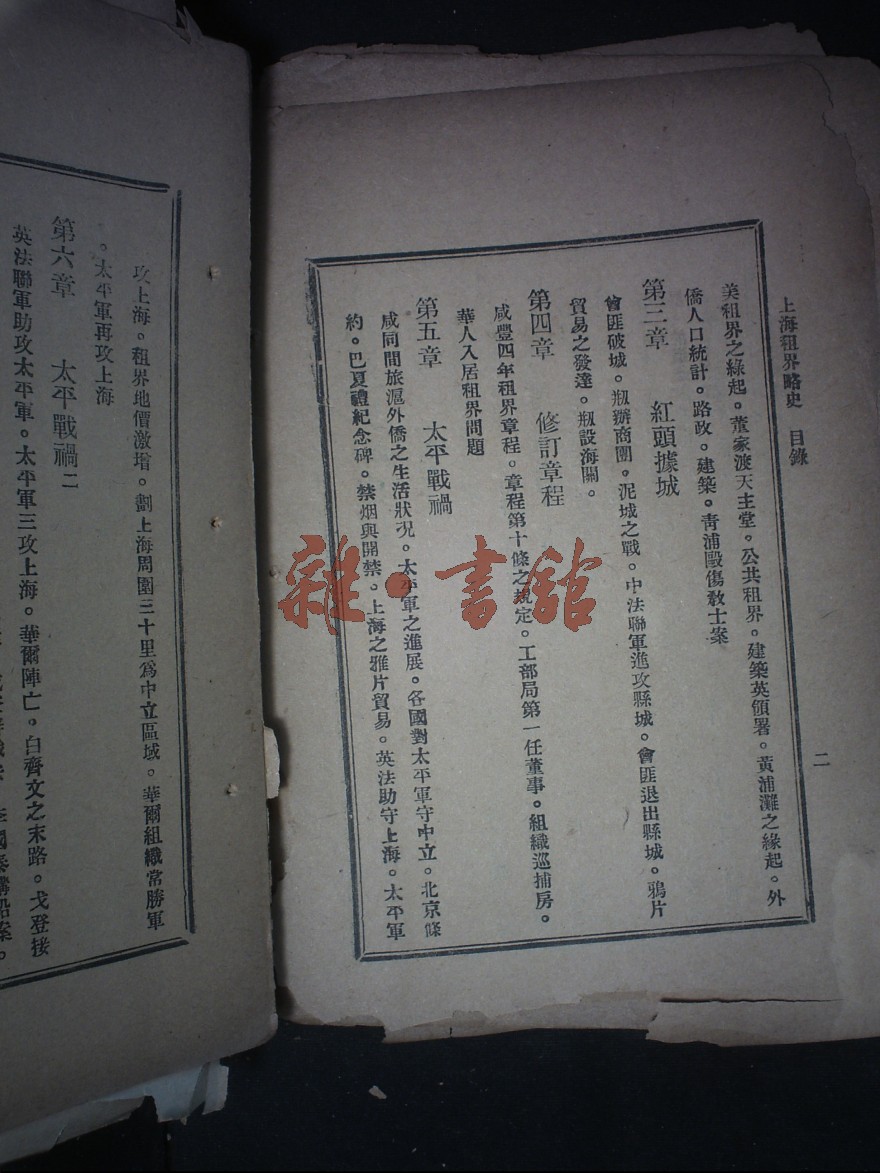 上海租界略史 目錄
二
美租界之緣起。董家渡天主堂。公共租界。建築英領署。黃浦灘之緣起。外
僑人口統計。路政。建築。青浦毆傷教士案
第三章 紅頭據城
會匪破城。剏辦商團。泥城之戰。中法聯軍進攻縣城。會匪退出縣城。鴉片
貿易之發達。剏設海關。
第四章 修訂章程
咸豐四年租界章程。章程第十條之規定。工部局第一任董事。組織巡捕房。
華人入居租界問題
第五章 太平戰禍
咸同間旅滬外僑之生活狀况。太平軍之進展。各國對太平軍守中立。北京條
約。巴夏禮紀念碑。禁烟與開禁。上海之雅片貿易。英法助守上海。太平軍
攻上海。租界地價激增。劃上海周圍三十里爲中立區域。華爾組織常勝軍
。太平軍再攻上海
第六章 太平戰禍二
英法聯軍助攻太平軍。太平軍三攻上海。華爾陣亡。白齊文之末路。戈登接
國泰購船案。
雜·書館